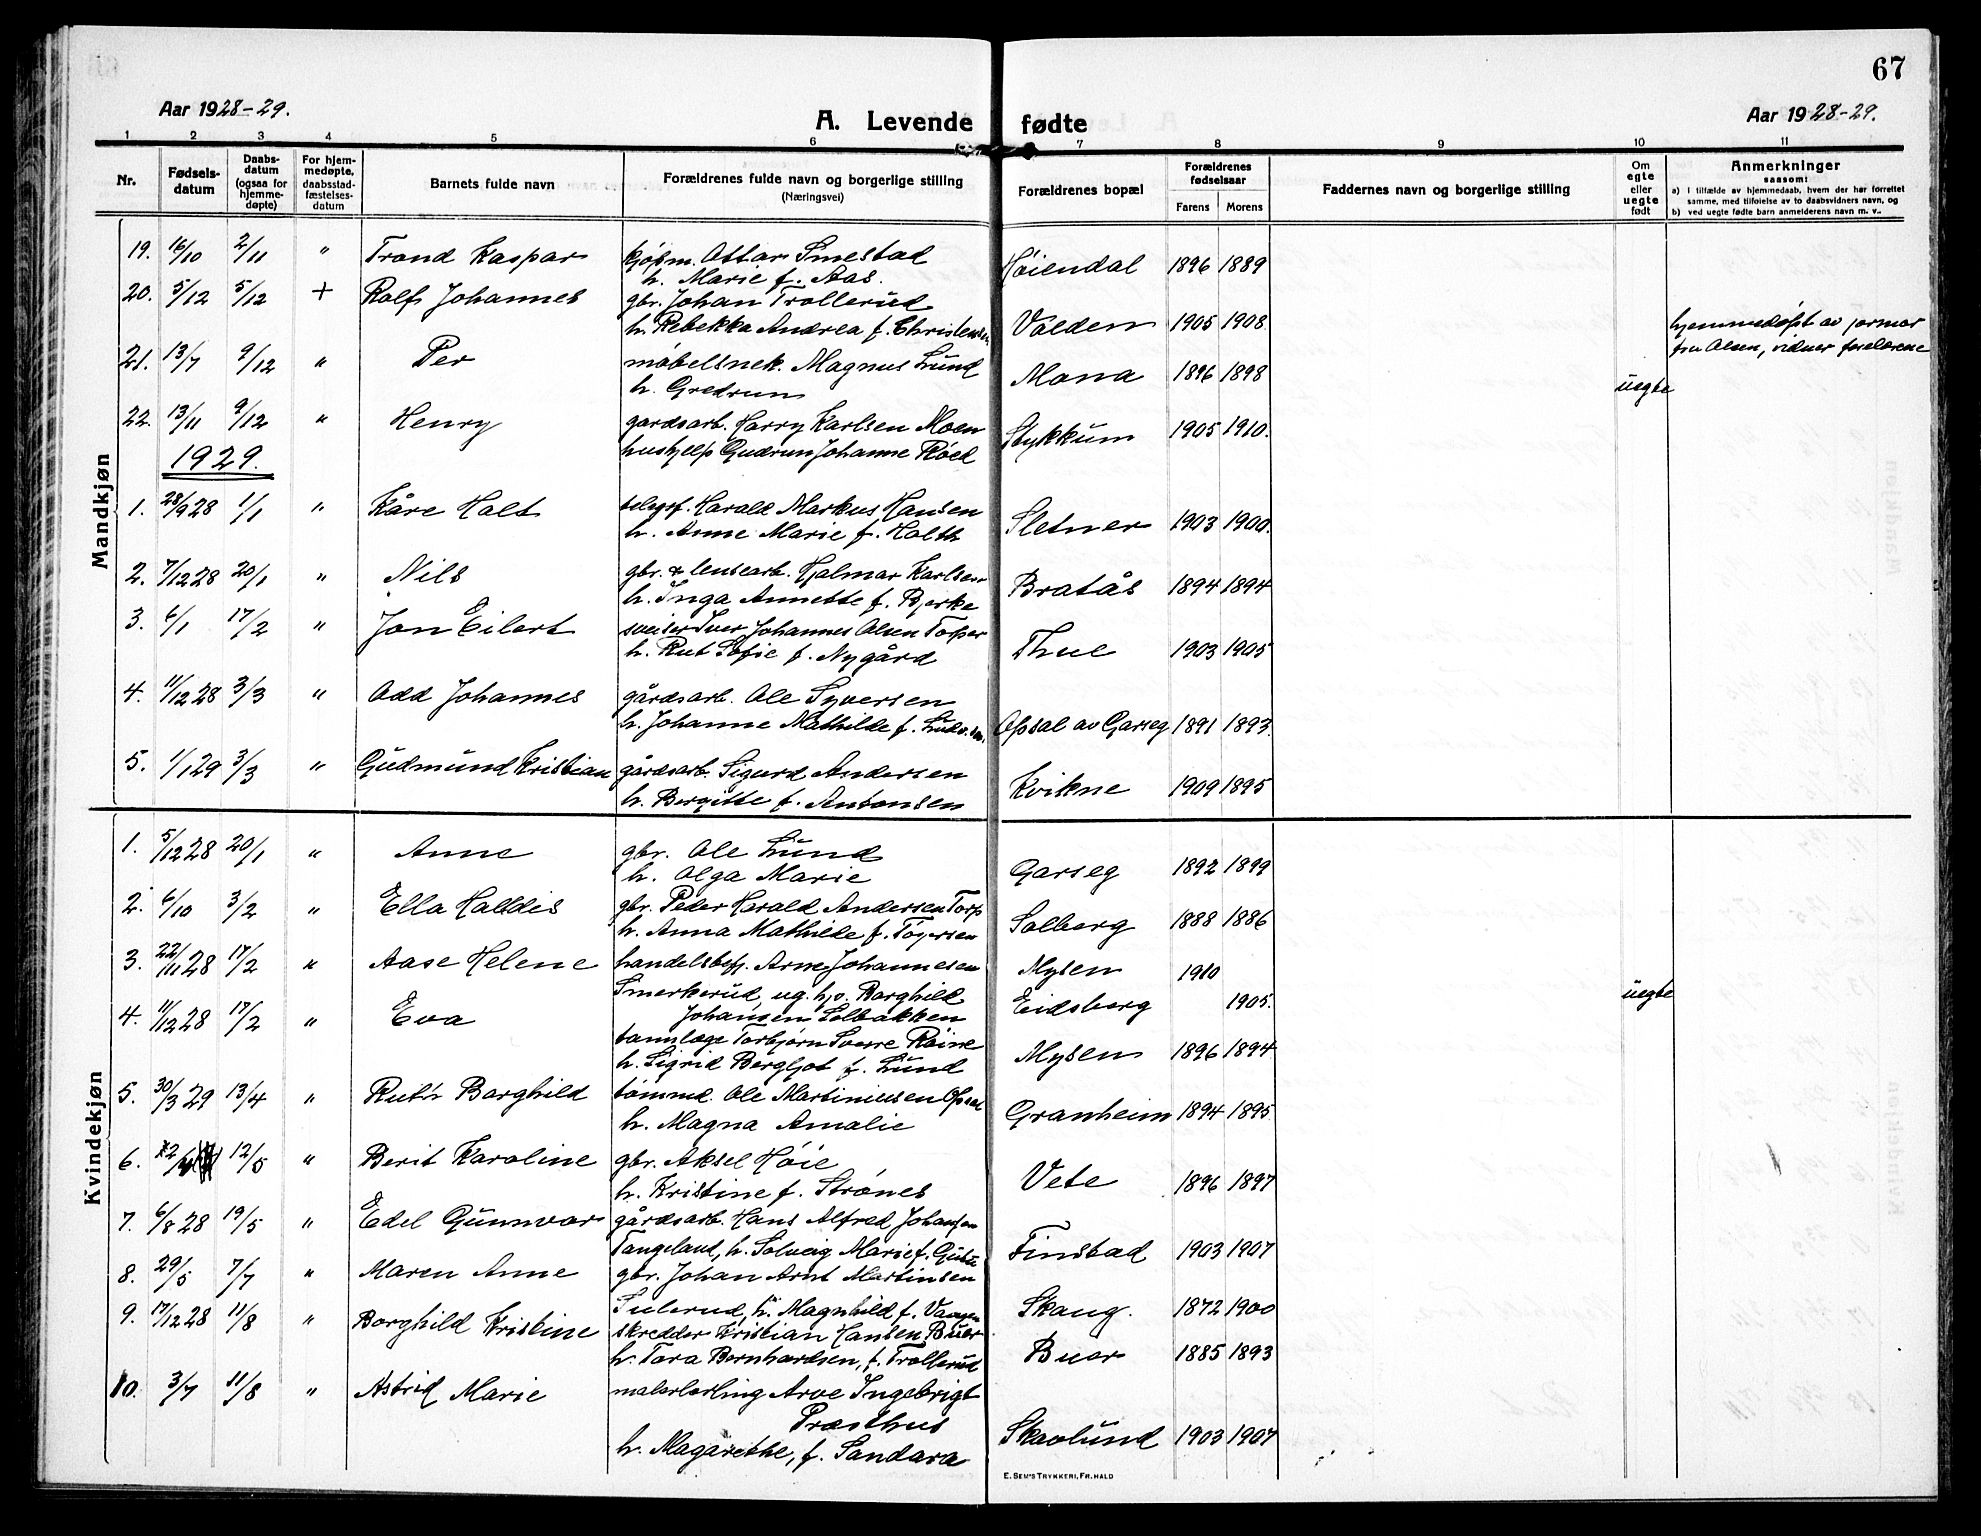 67
Aar 1928-29.
A. Levende fødte
Aar 1928-29.
1 2 3 4 5 6 7 8 9 10 11
Nr.
Fødsels-
datum
Daabs-
datum
(ogsaa for
hjemme-
døpte)
For hjem-
medøpte,
daabsstad-
fæstelses-
datum
Barnets fulde navn
Forældrenes fulde navn og borgerlige stilling
(Næringsvei)
Forældrenes bopæl
Forældrenes
fødselsaar
Farens Morens
Faddernes navn og borgerlige stilling
Om
egte
eller
uegte
født
Anmerkninger
saasom:
a) i tilfælde av hjemmedaab, hvem der har forrettet
samme, med tilføielse av to daabsvidners navn, og
b) ved uegte fødte barn anmelderens navn m. v..
Mandkjøn
19. 16/10 2/11 " Trond Kaspar kjøpm. Ottar Smestad Høiendal 1896 1889
h. Marie f. Aas.
20. 5/12 5/12 + Rolf Johannes gbr. Johan Trollerud
h. Rebekka Andrea f. Christensen Volden 1905 1908 hjemmedøpt av jormor
fru Olsen, vidner forelærene
21. 13/7 9/12 " Per møbelsnek. Magnus Lund Mona 1896 1898 uegte
h. Gredrun
22. 13/11 9/12 " Henry gardsarb. Harry Karlsen Moen Stykkum 1905 1910.
hushjelp Gudrun Johanne Røed
1929.
1. 28/9 28 1/1 " Kåre Holt telegrf. Harald Markus Hansen Sletner 1903 1900.
h. Anne Marie f. Holth
2. 7/12 28 20/1 " Nils gbr. & lensearb. Hjalmar Karlsen Bratås 1894 1894
h. Inga Annette f. Bjerke
3. 6/1 17/2 " Jon Eilert sveiser Iver Johannes Olsen Toper Thue 1903 1905
h. Rut Sofie f. Nygård
4. 11/12 28 3/3 " Odd Johannes gårdsarb. Ole Syversen
h. Johanne Mathilde f. Ludv.sen. Opsal av Garseg 1891 1893
5. 1/1 29 3/3 " Gudmund Kristian gårdsarb. Sigurd Andersen Kvikne 1909 1895
h. Bergitte f. Antonsen
Kvindekjøn
1. 5/12 28 20/1 " Anne gbr. Ole Lund Garseg 1892 1899
h. Olga Marie
2. 6/10 3/2 " Ella Halldis gbr. Peder Harald Andersen Torp Solberg 1888 1886
h. Anna Mathilde f. Tøgersen
3. 22/11 28 17/2 " Aase Helene handelsbetj. Arne Johannesen Mysen 1910 uegte
Smerkerud, ug. hp. Borghild Eidsberg 1905.
Johansen Solbakken
4. 11/12 28 17/2 " Eva tannlæge Torbjørn Sverre Røine Mysen 1896 1894
h. Sigrid Bergljot f. Lund
5. 30/3 29 13/4 " Ruth Borghild tømmd. Ole Martiniusen Opsal Granheim 1894 1895
h. Magna Amalie
6. 12/5 " Berit Karoline gbr. Aksel Høie Vete 1896 1897
h. Kristine f. Strønes
7. 6/8 28 19/5 " Edel Gunnvor gårdsarb. Hans Alfred Johansen Finstad 1903 1907
Tangeland, h. Solveig Marie f.
8. 29/5 7/7 " Maren Anne gbr. Johan Arnt Martinsen Skaug. 1872 1900
Sulerud, h. Magnhild f.
9. 17/12 28 11/8 " Borghild Kristine skredder Kristian Hansen Buer Buer 1885 1893
h. Tora Bernhardsen, f. Trollerud
10. 3/7 11/8 " Astrid Marie malerlærling Arve Ingebrigt
Præsthus
h. Magarethe, f. Sandara Skavlund 1903 1907
E. SEM'S TRYKKERI, FR.HALD